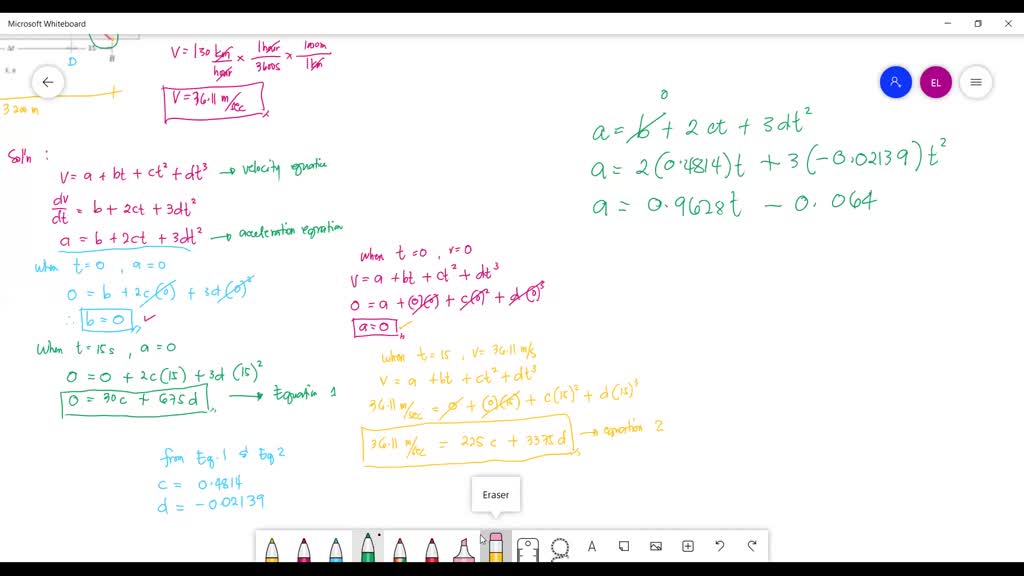 Microsoft Whiteboard
EL
D
3200m
V = 130 km/hour × 1 hour/3600s × 1000m/1km
V = 36.11 m/sec
Sol'n :
V = a + bt + ct² + dt³ → velocity equation
dv/dt = b + 2ct + 3dt²
a = b + 2ct + 3dt² → acceleration equation
when t=0 , a=0
0 = b + 2c(0) + 3d(0)²
∴ b=0 ✓
When t=15s , a=0
0 = 0 + 2c(15) + 3d(15)²
0 = 30c + 675d → Equation 1
from Eq.1 & Eq 2
c = 0.4814
d = -0.02139
when t=0 , v=0
V = a + bt + ct² + dt³
0 = a + (0)(0) + c(0)² + d(0)³
a=0 ✓
when t=15 , V= 36.11 m/s
V = a + bt + ct² + dt³
36.11 m/sec = 0 + (0)(15) + c(15)² + d(15)³
36.11 m/sec = 225c + 3375d → equation 2
0
a = b + 2ct + 3dt²
a = 2(0.4814)t + 3(-0.02139)t²
a = 0.9628t - 0.064
Eraser
A